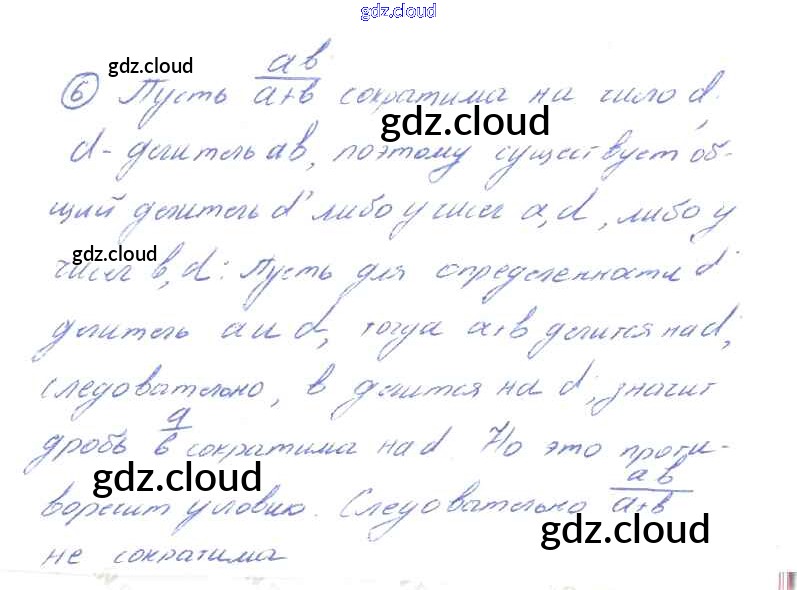 gdz.cloud
gdz.cloud
⑥ Пусть ab/a+b сократима на число d.
gdz.cloud
d - делитель ab, поэтому существует об-
щий делитель d' либо у чисел a, d, либо у
gdz.cloud
чисел b, d: Пусть для определенности d'
делитель a и d, тогда a+b делится на d',
следовательно, b делится на d', значит
дробь a/b сократима на d'. Но это проти-
gdz.cloud
воречит условию. Следовательно ab/a+b
gdz.cloud
не сократима